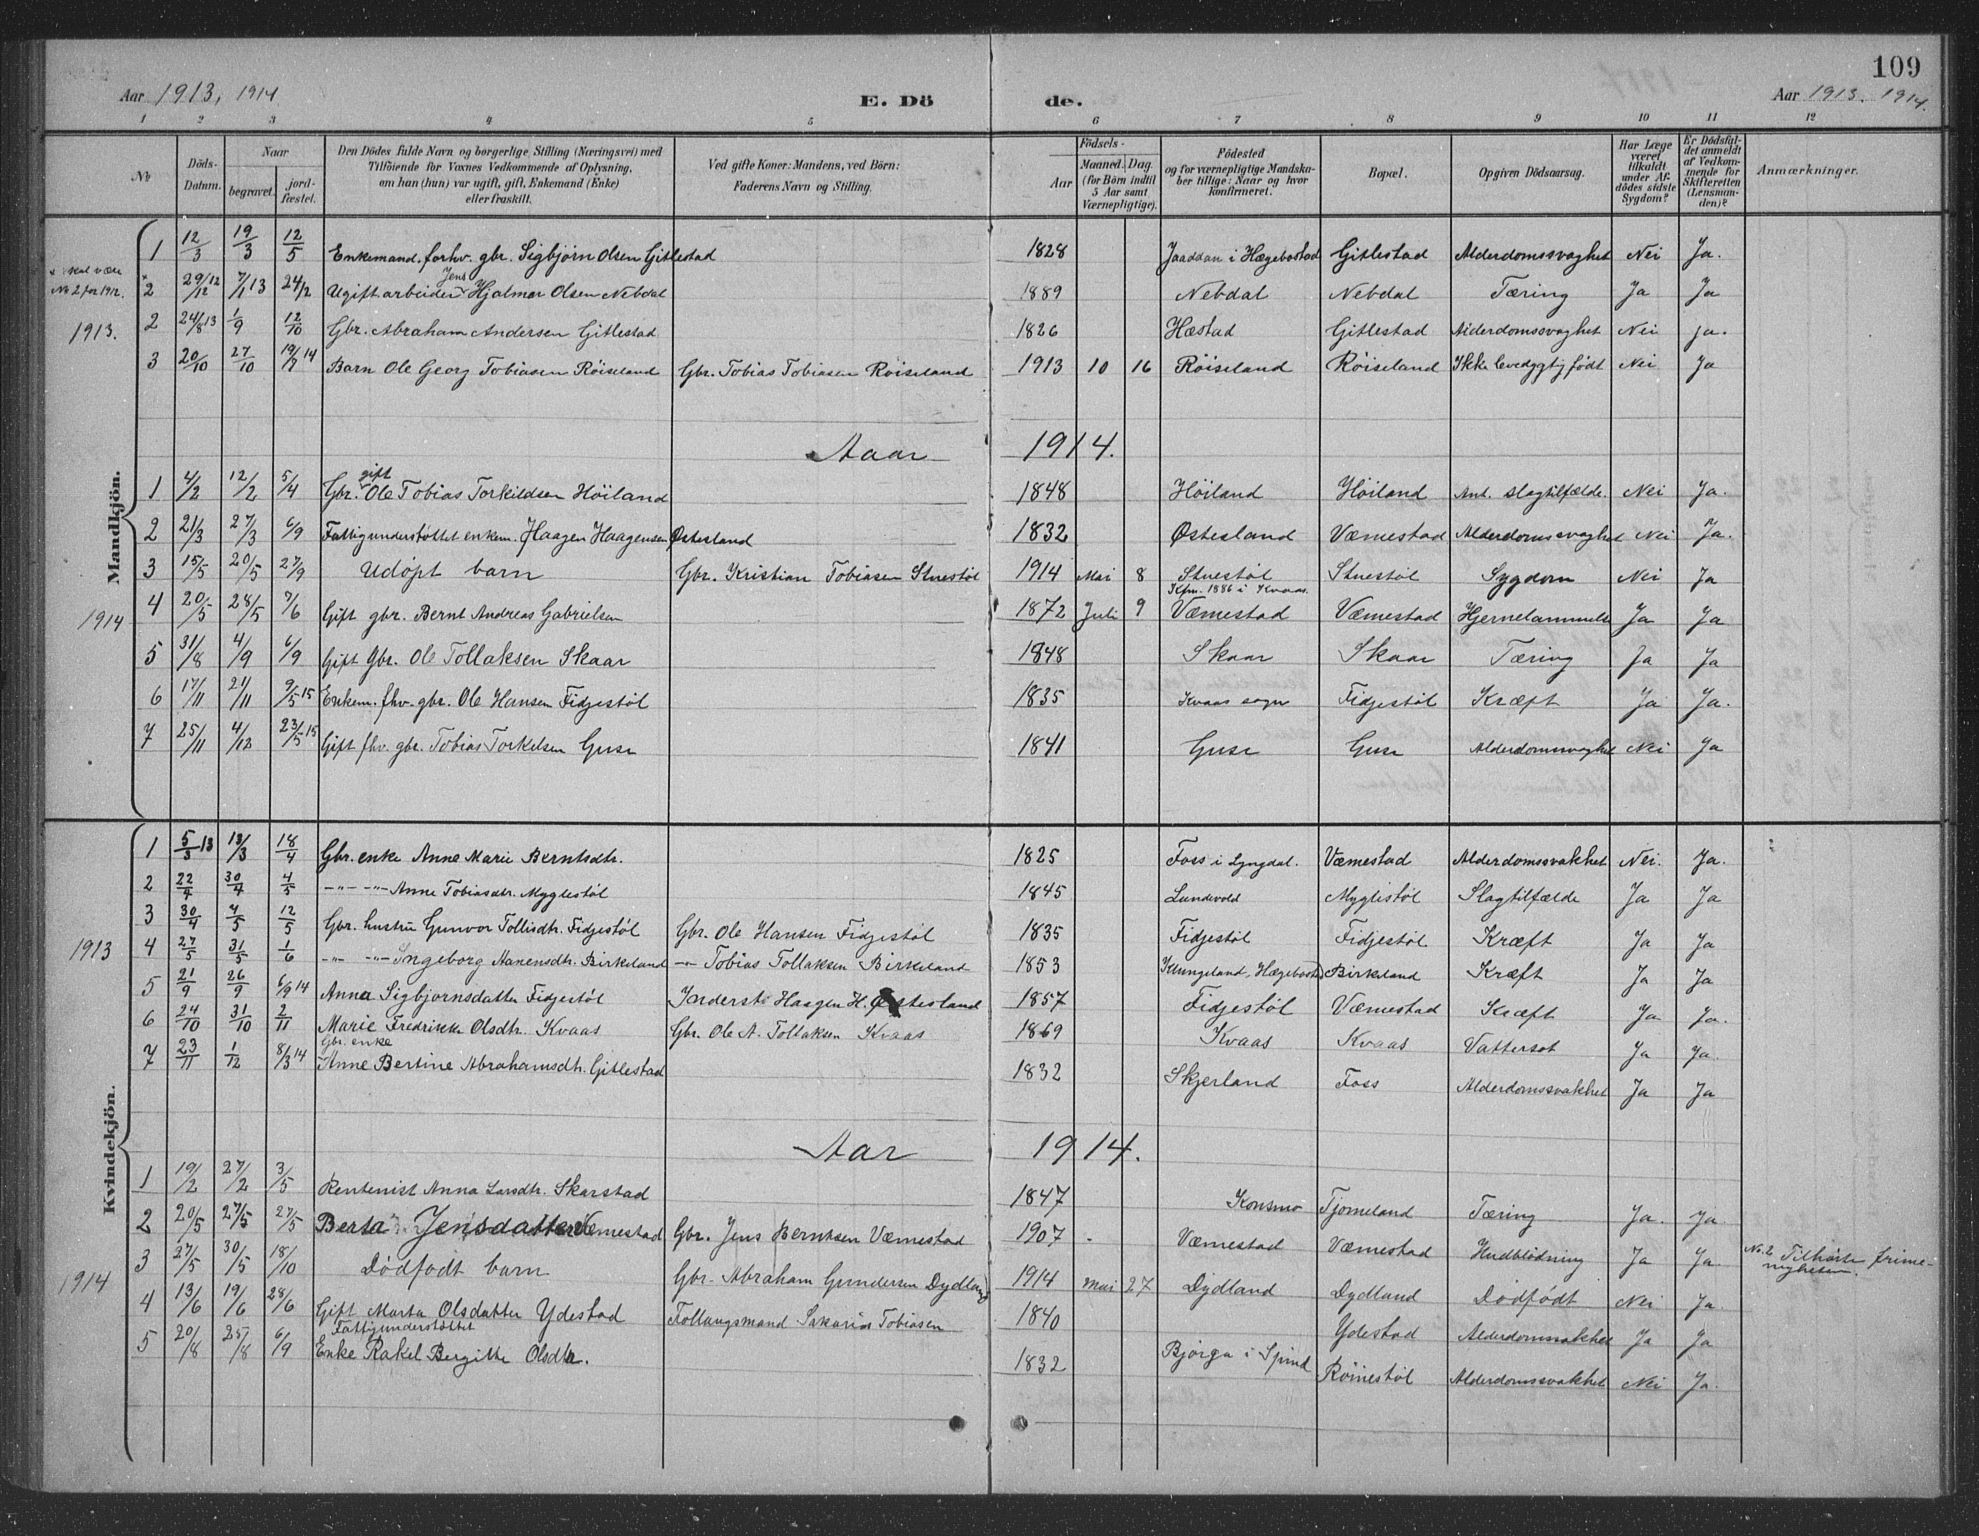 109
Aar 1913, 1914 E. Dö de. Aar 1913. 1914.
1 2 3 4 5 6 7 8 9 10 11 12
No
Döds-Datum.
Naar
begravet. jord-fæstet.
Den Dödes fulde Navn og borgerlige Stilling (Næringsvei) med Tilföiende for Voxnes Vedkommende af Oplysning, om han (hun) var ugift, gift, Enkemand (Enke) eller fraskilt.
Ved gifte Koner: Mandens, ved Börn: Faderens Navn og Stilling.
Födsels-
Aar Maaned. Dag. (for Börn indtil 5 Aar samt Værnepligtige).
Födested og for værnepligtige Mandska-ber tillige: Naar og hvor konfirmeret.
Bopæl.
Opgiven Dödsaarsag.
Har Læge været tilkaldt under Af-dödes sidste Sygdom?
Er Dödsfal-det anmeldt af Vedkom-mende for Skifteretten (Lensman-den)?
Anmærkninger.
Mandkjön.
1 12/3 19/3 12/5 Enkemand. forhv. gbr. Sigbjörn Olsen Gitlestad 1828 Jaaddan i Hægebostad Gitlestad Alderdomssvaghet Nei Ja.
x skal være No 2 for 1912.
x 2 29/12 12 7/1 13 24/2 Ugift arbeider Jens Hjalmar Olsen Nebdal 1889 Nebdal Nebdal Tæring Ja Ja
1913.
2 24/8 13 1/9 12/10 Gbr. Abraham Andersen Gitlestad 1826 Hæstad Gitlestad Alderdomssvaghet Nei ja.
3 20/10 27/10 14 Barn Ole Georg Tobiasen Röiseland Gbr. Tobias Tobiasen Röiseland 1913 10 16 Röiseland Röiseland Ikke levedygtig født Nei Ja
Aar 1914.
1 4/2 12/2 5/4 Gbr. gift Ole Tobias Torkildsen Höiland 1848 Höiland Höiland Ant. slagtilfælde. Nei Ja.
2 21/3 27/3 6/9 Fattigunderstøttet enkem. Haagen Haagensen Østesland 1832 Østesland Væmestad Alderdomssvaghet Nei Ja.
3 15/5 20/5 27/9 Udöpt barn Gbr. Kristian Tobiasen Stuestöl 1914 Mai 8 Stuestöl Stuestöl Sygdom Nei Ja
1914
4 20/5 28/5 7/6 Gift gbr. Bernt Andreas Gabrielsen 1872 Juli 9 Kfm. 1886 i Kvaas. Væmestad Væmestad Hjernelammelse Ja Ja
5 31/8 4/9 6/9 Gift Gbr. Ole Tollaksen Skaar 1848 Skaar Skaar Tæring Ja Ja
6 17/11 21/11 9/5 15 Enkem. fhv. gbr. Ole Hansen Fidjestöl 1835 Kvaas sogn Fidjestöl Kræft Ja Ja.
7 25/11 4/12 23/5 15 Gift fhv. gbr. Tobias Torkelsen Guse 1841 Guse Guse Alderdomssvaghet Nei Ja
Kvindekjön.
1 5/3 13 13/3 18/4 Gbr. enke Anne Marie Berntsdtr. 1825 Foss i Lyngdal. Væmestad Alderdomssvakhet Nei. Ja.
2 22/4 30/4 4/5 -"- -"- Anne Tobiasdtr. Myglestöl 1845 Lundevold Myglestöl Slagtilfælde Ja Ja
3 30/4 4/5 12/5 Gbr. hustru Gunvor Tollisdtr. Fidjestöl Gbr. Ole Hansen Fidjestöl 1835 Fidjestöl Fidjestöl Kræft Ja Ja
1913
4 27/5 31/5 1/6 -"- -"- Ingeborg Aanensdtr. Birkeland -"- Tobias Tollaksen Birkeland 1853 Klungeland, Hægebostad Birkeland Kræft Ja Ja
5 21/9 26/9 6/9 14 Anna Sigbjørnsdatter Fidjestöl Inderst Haagen H. Østesland 1857 Fidjestöl Væmestad Kræft Ja Ja.
6 24/10 31/10 2/11 Marie Fredrikke Olsdtr. Kvaas Gbr. Ole A. Tollaksen Kvaas 1869 Kvaas Kvaas Vattersot Ja Ja.
7 23/11 1/12 8/3 14 Gbr. enke Anne Bertine Abrahamsdtr. Gitlestad 1832 Skjerland Foss Alderdomssvakhet Ja Ja
Aar 1914.
1 19/2 27/2 3/5 Rentenist Anna Larsdtr. Skarstad 1847 Konsmo Tjomeland Tæring Ja. Ja.
2 20/5 27/5 27/5 Berta Jensdatter Væmestad Gbr. Jens Berntsen Væmestad 1907 - Væmestad Væmestad Hudblödning Ja Ja. No. 2 Tilhörte frime-nigheten.
3 27/5 30/5 18/10 Dödfödt barn Gbr. Abraham Gundersen Dydland 1914 Mai 27 Dydland Dydland Dödfödt Nei Ja.
1914
4 13/6 19/6 28/6 Gift Marta Olsdatter Ydestad Follaugsmand Sakarias Tobiasen 1840 Ydestad Alderdomssvakhet Ja Ja
5 20/8 25/8 6/9 Fattigunderstøttet Enke Rakel Bergitte Olsdtr. 1832 Bjørga i Spind Röinestöl Alderdomssvakhet Nei Ja.